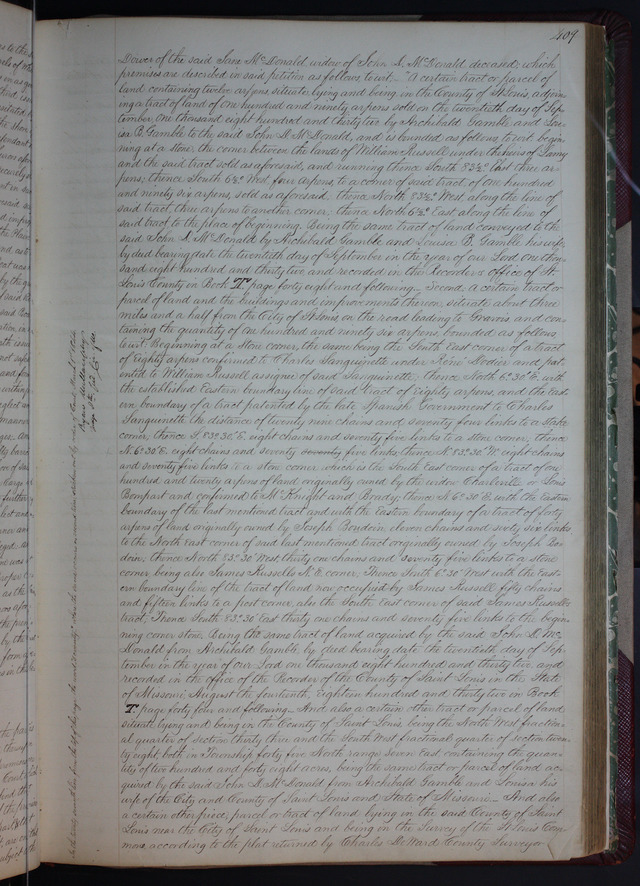 409
Dower of the said Jane McDonald widow of John L. McDonald, deceased, which
premises are described in said petition as follows to wit. "A certain tract or parcel of
land containing twelve arpens situate lying and being in the County of St Louis, adjoin-
ing a tract of land of one hundred and ninety arpens sold on the twentieth day of Sep-
tember, one thousand eight hundred and thirty two by Archibald Gamble and Lou-
isa B. Gamble to the said John L. McDonald, and is bounded as follows to wit: begin-
ning at a stone, the corner between the lands of William Russell under
and the said tract sold as aforesaid, and running thence South 83½° East three ar-
pens; thence South 6½° West, four arpens, to a corner of said tract of one hundred
and ninety six arpens, sold as aforesaid; thence North 83½° West, along the line of
said tract three arpens to another corner; thence North 6½° East along the line of
said tract to the place of beginning. Being the same tract of land conveyed to the
said John L. McDonald by Archibald Gamble and Louisa B. Gamble his wife,
by deed bearing date the twentieth day of September in the year of our Lord one thou-
sand eight hundred and thirty two and recorded in the Recorders office of St
Louis County in Book T page forty eight and following. Second a certain tract or
parcel of land and the buildings and improvements thereon, situate about three
miles and a half from the City of St Louis, on the road leading to Gravois and con-
taining the quantity of one hundred and ninety six arpens bounded as follows,
to wit: Beginning at a stone corner, the same being the South East corner of a tract
of Eighty arpens confirmed to Charles Sanguinette under Réné and pat-
ented to William Russell assignee of said Sanguinette; thence North 6°.30' E. with
the established Eastern boundary line of said tract of Eighty arpens, and the East-
ern boundary of a tract patented by the late Spanish Government to Charles
Sanguinette the distance of twenty nine chains and seventy four links to a stake
corner, thence S. 83°.30' E. eight chains and seventy five links to a stone corner, thence
N. 6°.30' E. eight chains and seventy seventy five links thence N. 83°.30' W. eight chains
and seventy five links to a stone corner which is the South East corner of a tract of one
hundred and twenty arpens of land originally owned by the widow Charleville or Louis
Bompart and confirmed to McKnight and Brady; thence N. 6°.30' E. with the Eastern
boundary of the last mentioned tract and with the Eastern boundary of a tract of forty
arpens of land originally owned by Joseph Bondoin, eleven chains and sixty six links
to the North East corner of said last mentioned tract originally owned by Joseph Bon-
doin; thence North 83°.30' West, thirty one chains and seventy five links to a stone
corner being also James Russells N. E. corner. Thence South 6°.30' West with the East-
ern boundary line of the tract of land now occupied by James Russell fifty chains
and fifteen links to a post corner, also the South East corner of said James Russells
tract; Thence South 83°.30' East thirty one chains and seventy five links to the begin-
ning corner stone. Being the same tract of land acquired by the said John L. Mc-
Donald from Archibald Gamble by deed bearing date the twentieth day of Sep-
tember in the year of our Lord one thousand eight hundred and thirty two and
recorded in the office of the Recorder of the County of Saint Louis in the State
of Missouri August the fourteenth, Eighteen hundred and thirty two in Book
T page forty four and following. And also a certain other tract or parcel of land,
situate lying and being in the County of Saint Louis, being the North West fraction-
al quarter of section thirty three and the South West fractional quarter of section twen-
ty eight, both in Township forty five North range seven East containing the quan-
tity of two hundred and forty eight acres, being the same tract or parcel of land ac-
quired by the said John L. McDonald from Archibald Gamble and Louisa his
wife of the City and County of Saint Louis and State of Missouri. And also
a certain other piece, parcel or tract of land lying in the said County of Saint
Louis near the City of Saint Louis and being in the Survey of the St Louis Com-
mons, according to the plat returned by Charles DeWard County Surveyor